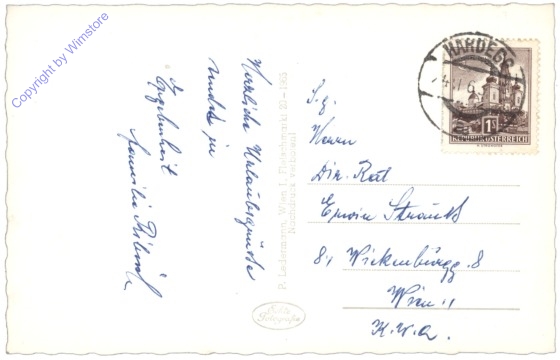 Copyright by Wimstore
Herzliche Urlaubsgrüsse
sendet in
Ergebenheit
Familie
P. Ledermann, Wien I, Fleischmarkt 20—1953
Nachdruck verboten!
Echte
Fotografie
HARDEGG
1S
REPUBLIK ÖSTERREICH
S.g.
Herrn
Dir. Rat
Erwin
8, Wickenburgg. 8
Wien
K.W.A.